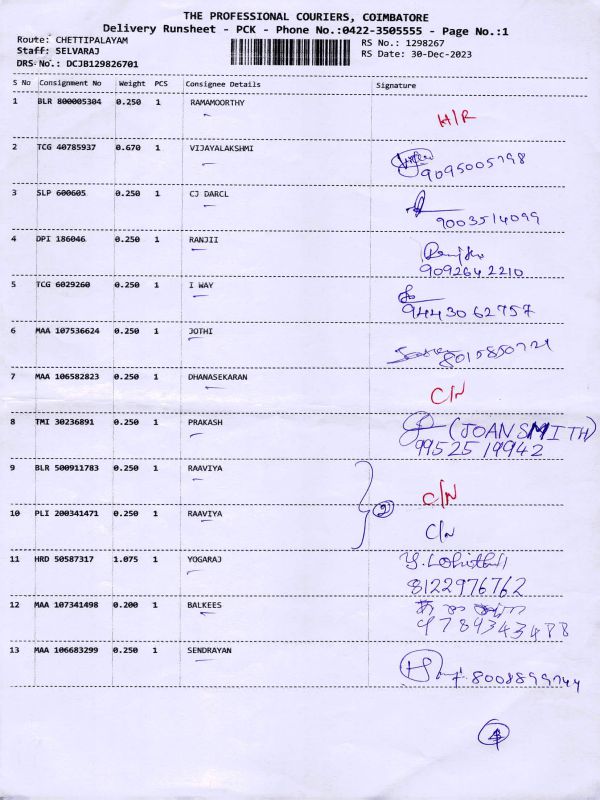 THE PROFESSIONAL COURIERS, COIMBATORE
Delivery Runsheet - PCK - Phone No.:0422-3505555 - Page No.:1
Route: CHETTIPALAYAM
RS No.: 1298267
Staff: SELVARAJ
RS Date: 30-Dec-2023
DRS No.: DCJB129826701
S No Consignment No Weight PCS Consignee Details Signature
1 BLR 800005304 0.250 1 RAMAMOORTHY
H/R
2 TCG 40785937 0.670 1 VIJAYALAKSHMI
9095005798
3 SLP 600605 0.250 1 CJ DARCL
9003514099
4 DPI 186046 0.250 1 RANJII
9092642210
5 TCG 6029260 0.250 1 I WAY
9443062757
6 MAA 107536624 0.250 1 JOTHI
8015850721
7 MAA 106582823 0.250 1 DHANASEKARAN
C/N
8 TMI 30236891 0.250 1 PRAKASH
(JOANSMITH)
9952519942
9 BLR 500911783 0.250 1 RAAVIYA
C/N
10 PLI 200341471 0.250 1 RAAVIYA
2
C/N
11 HRD 50587317 1.075 1 YOGARAJ
8122976762
12 MAA 107341498 0.200 1 BALKEES
9789343488
13 MAA 106683299 0.250 1 SENDRAYAN
8008899744